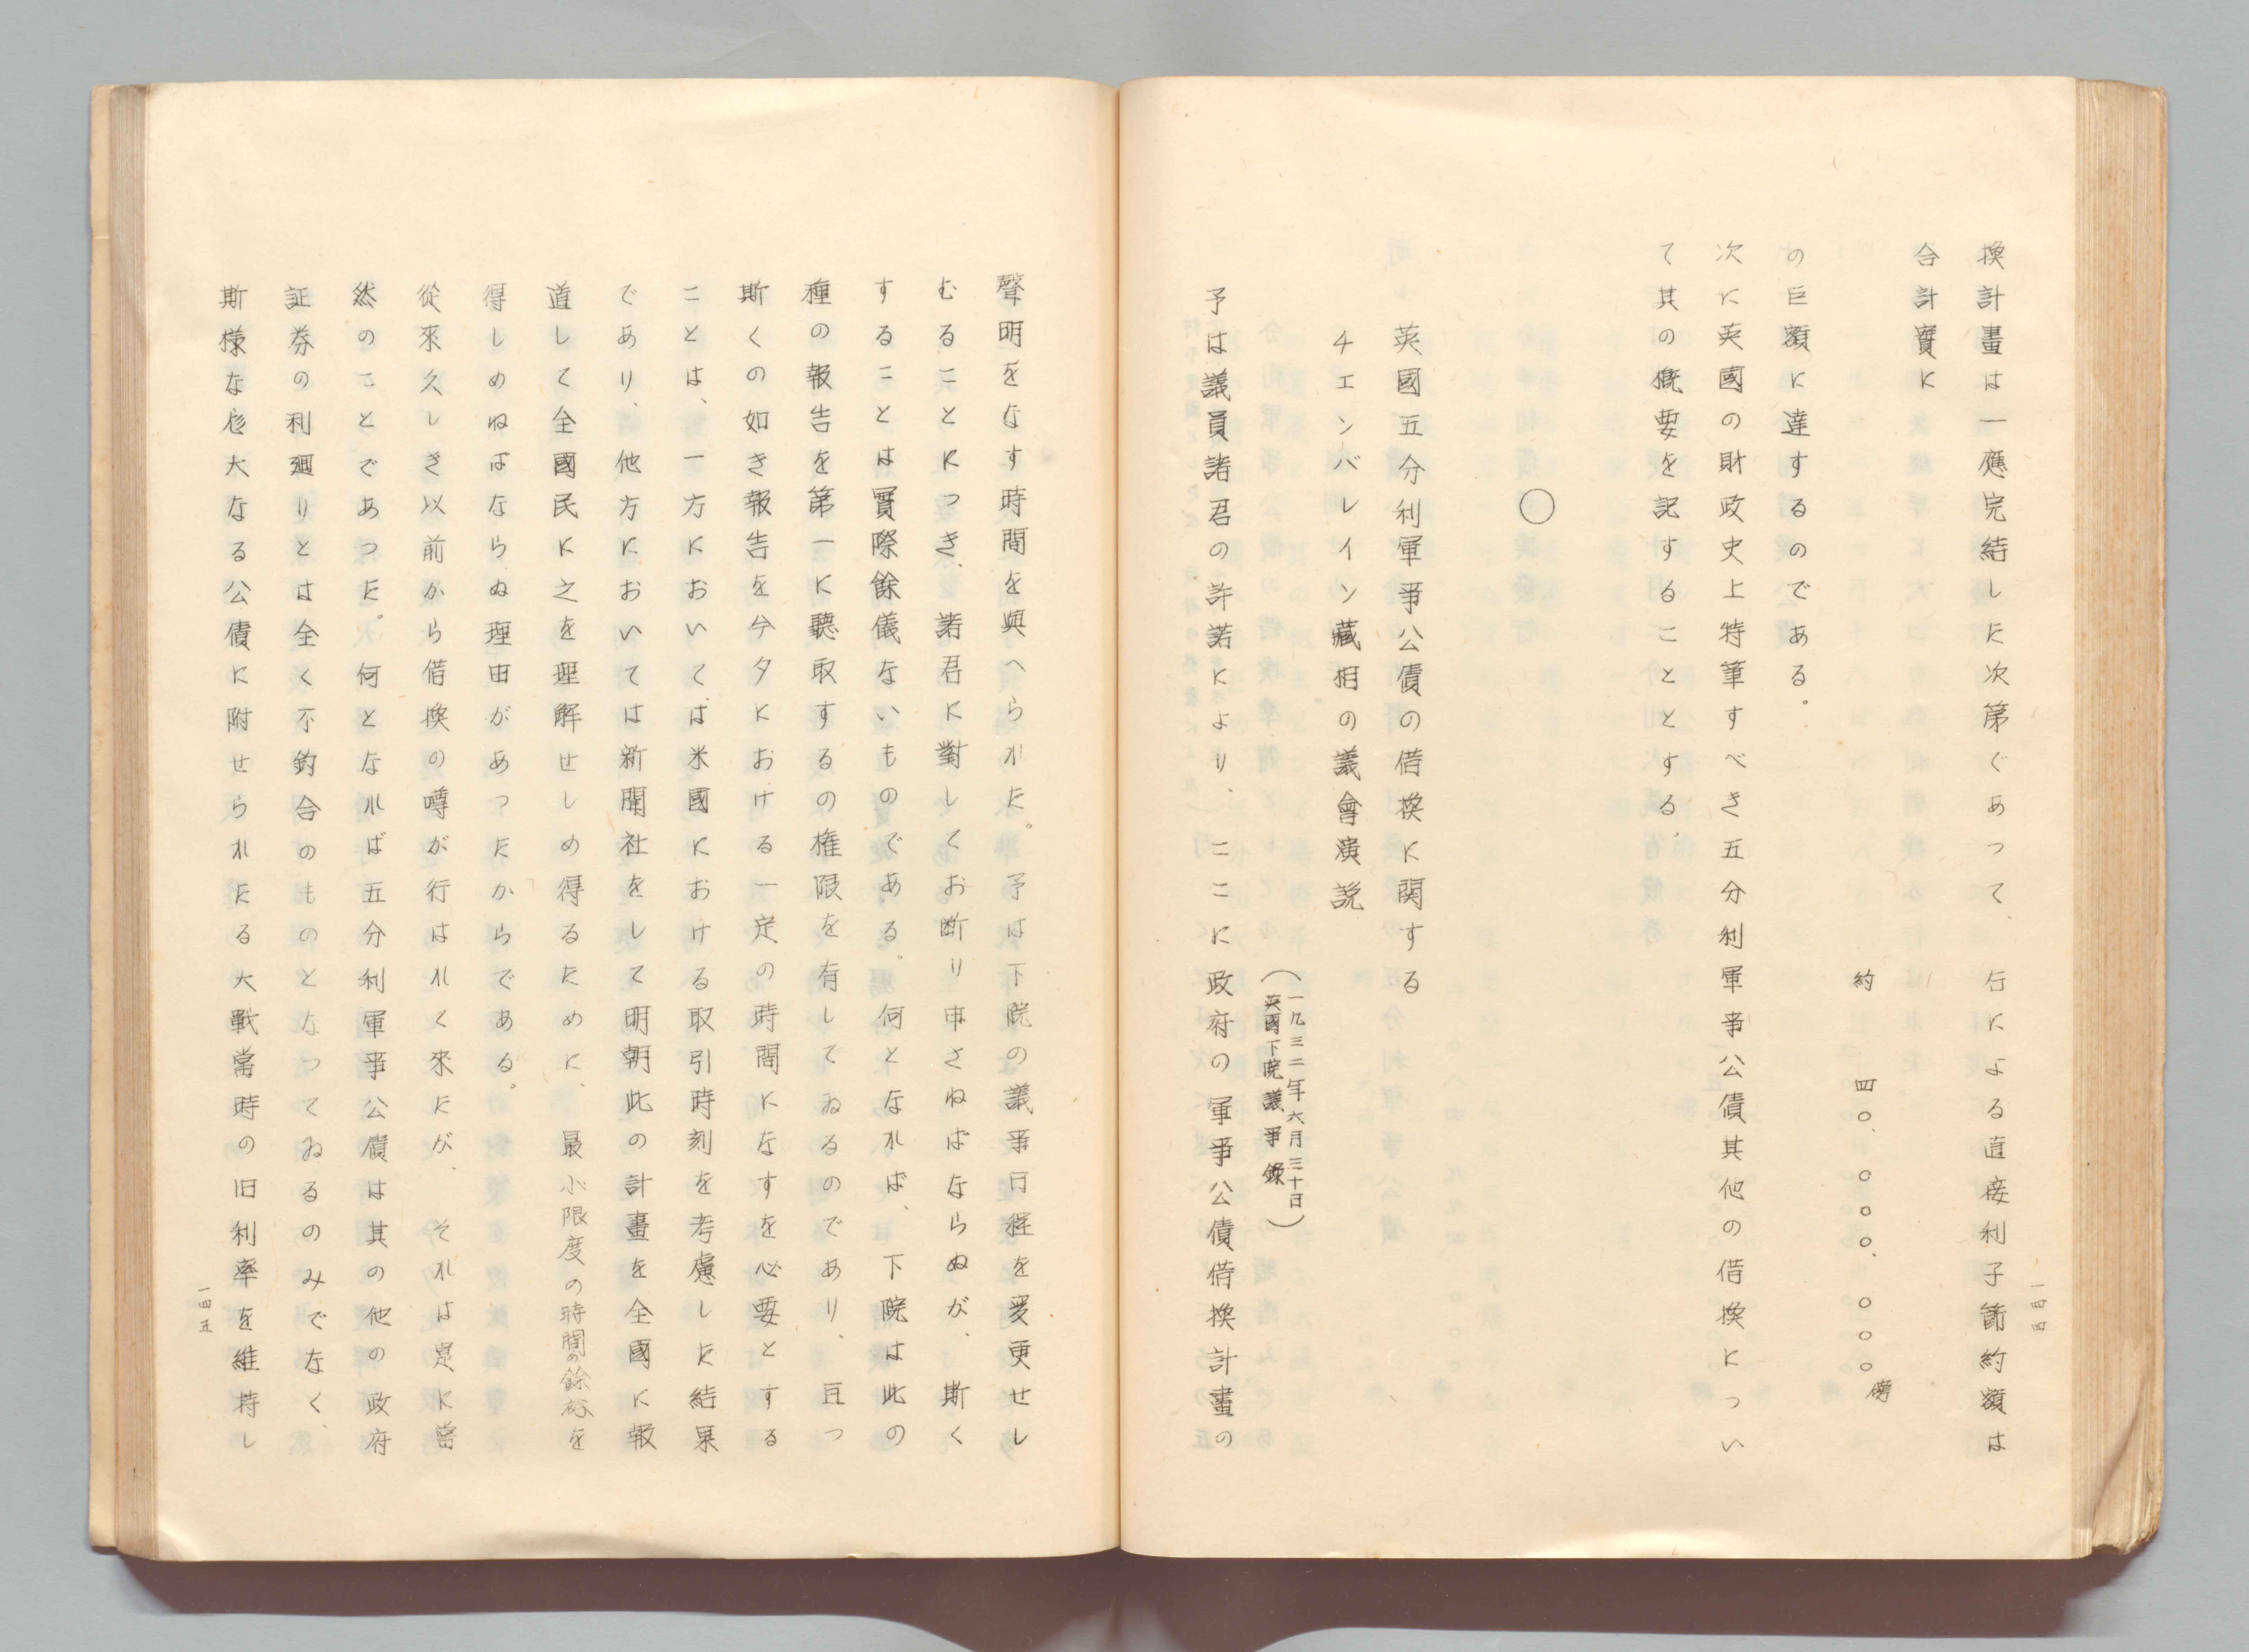 換計畫は一應完結した次第であって、之による直接利子節約額は
合計實に
約四〇、〇〇〇、〇〇〇磅
の巨額に達するのである。
次に英國の財政史上特筆すべき五分利軍事公債其他の借換につい
て其の概要を記することとする。
〇
英國五分利軍事公債の借換に関する
チエンバレイン藏相の議會演説
(一九三二年六月三十日
英國下院議事錄)
予は議員諸君の許諾により、ここに政府の軍事公債借換計畫の
一四四
聲明をなす時間を與へられた。予は下院の議事日程を変更せし
むることにつき、諸君に對してお断り申さねばならぬが、斯く
することは實際餘儀ないものである。何となれば、下院は此の
種の報告を第一に聽取するの権限を有してゐるのであり、且つ
斯くの如き報告を今夕における一定の時間になすを必要とする
ことは、一方においては米國における取引時刻を考慮した結果
であり、他方においては新聞社をして明朝此の計畫を全國に報
道して全國民に之を理解せしめ得るために、最小限度の時間の餘裕を
得しめねばならぬ理由があつたからである。
從來久しき以前から借換の噂が行はれて來たが、それは寔に當
然のことであつた。何となれば五分利軍事公債は其の他の政府
証券の利廻りとは全く不釣合のものとなつてゐるのみでなく、
斯様な厖大なる公債に附せられたる大戰當時の旧利率を維持し
一四五